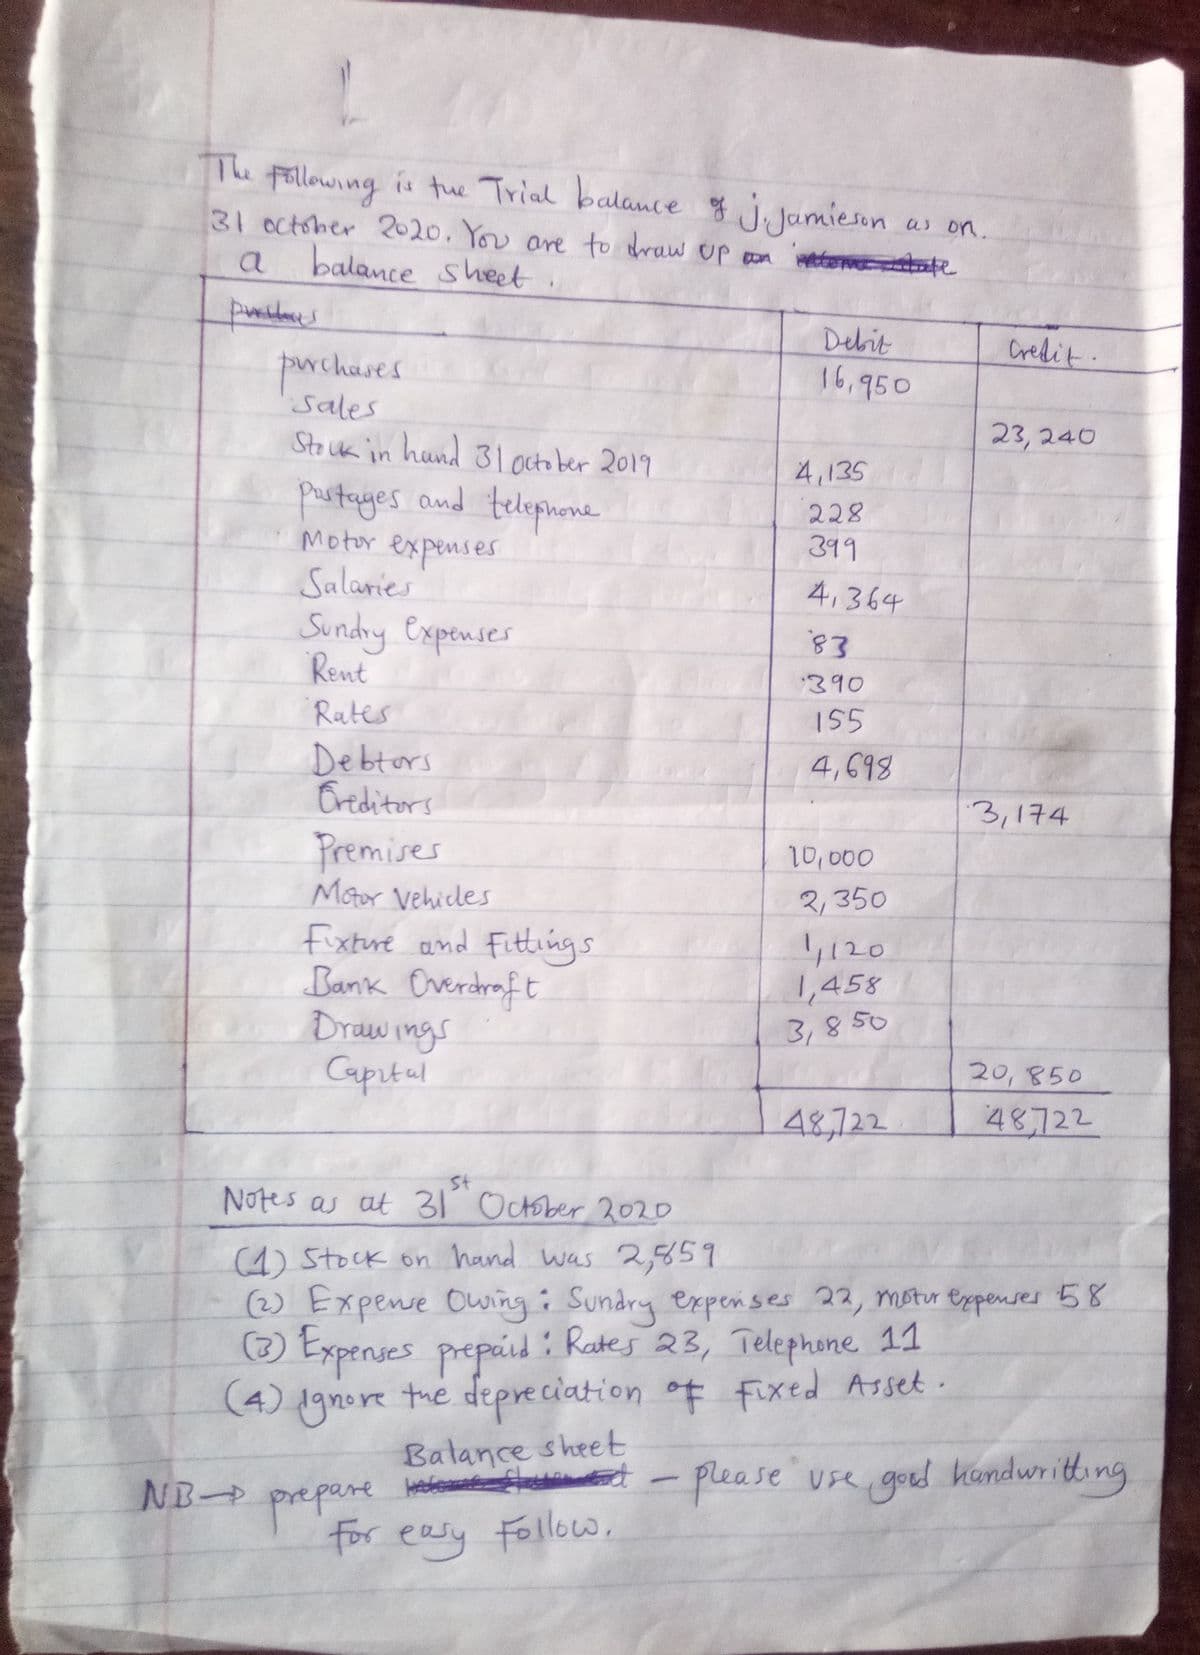 1
The Following is the Trial balance of J. Jamieson as on.
31 october 2020. You are to draw up an
a balance sheet.
Debit Credit.
purchases 16,950
sales 23,240
Stock in hand 31 October 2019 4,135
Postages and telephone 228
Motor expenses 399
Salaries 4,364
Sundry Expenses 83
Rent 390
Rates 155
Debtors 4,698
Creditors 3,174
Premises 10,000
Motor Vehicles 2,350
Fixture and Fittings 1,120
Bank Overdraft 1,458
Drawings 3,850
Capital 20,850
48,722 48,722
Notes as at 31st October 2020
(1) Stock on hand was 2,859
(2) Expense Owing : Sundry expenses 22, motor Expenses 58
(3) Expenses prepaid : Rates 23, Telephone 11
(4) Ignore the depreciation of Fixed Asset.
Balance sheet
NB→ prepare - please use good handwritting
For easy Follow.